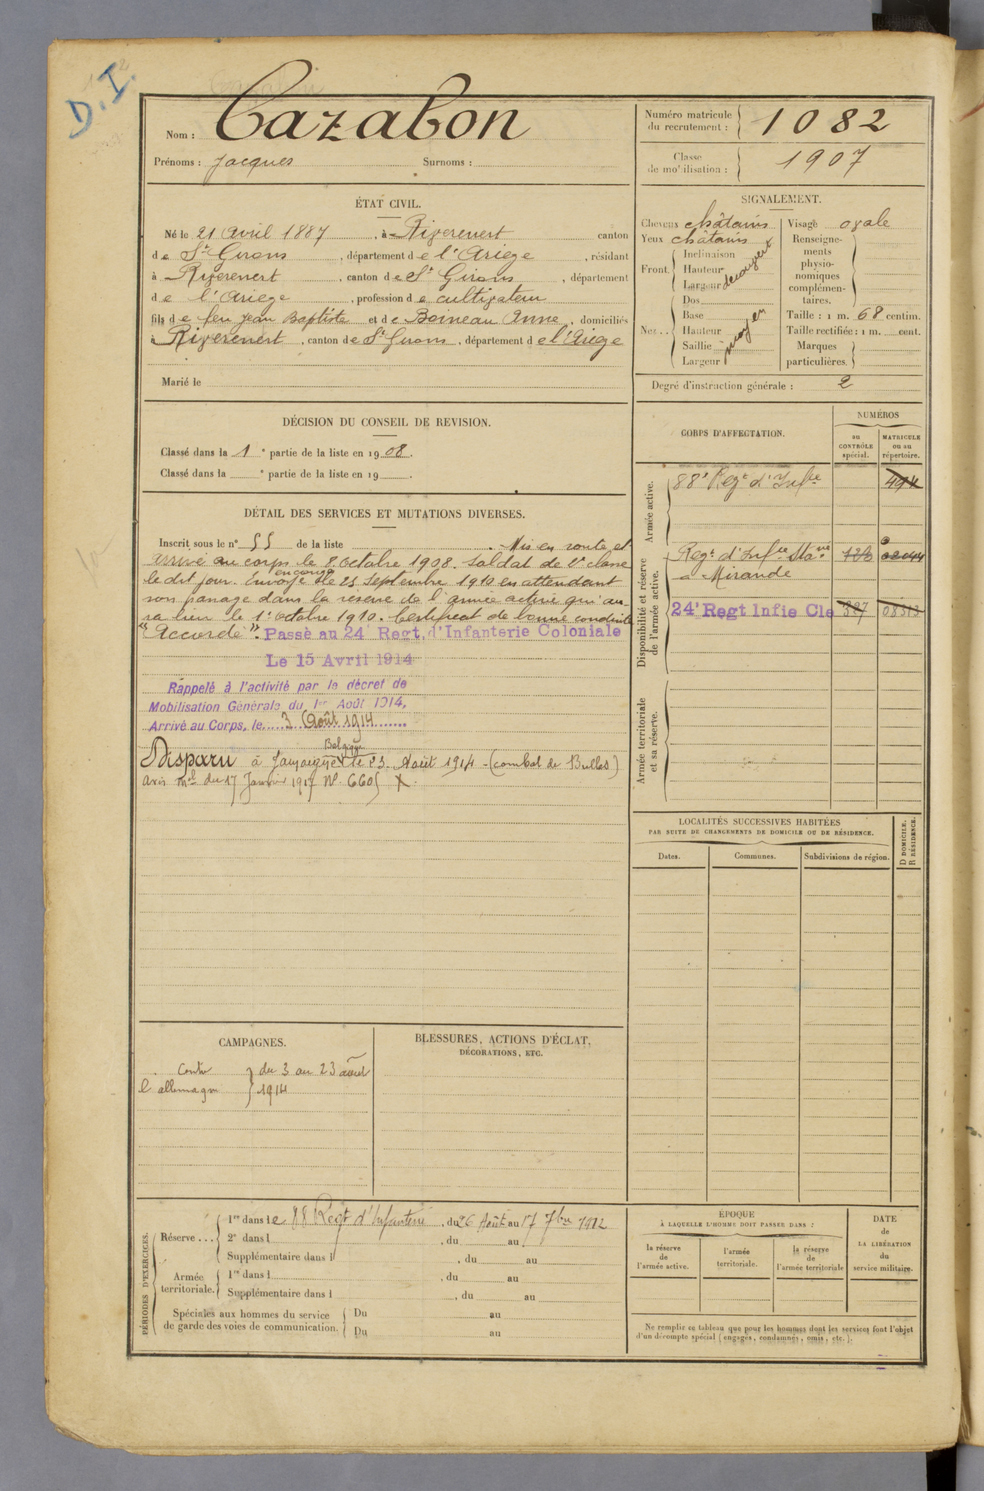 D.I.
Nom : Cazabon
Prénoms : Jacques Surnoms :
Numéro matricule du recrutement : 1082
Classe de mobilisation : 1907
ÉTAT CIVIL.
Né le 21 Avril 1887, à Rizerenert canton
de St Girons, département de l'Ariege, résidant
à Rizerenert, canton de St Girons, département
de l'Ariege, profession de cultivateur
fils de feu Jean Baptiste et de Boineau Anne, domiciliés
à Rizerenert, canton de St Girons, département de l'Ariege
Marié le
SIGNALEMENT.
Cheveux châtains Visage ovale
Yeux châtains Renseigne-
ments
physio-
nomiques
complémen-
taires.
Front. Inclinaison
Hauteur
Largeur découvert
Nez. Dos
Base
Hauteur
Saillie moyen
Largeur
Taille : 1 m. 68 centim.
Taille rectifiée : 1 m. cent.
Marques
particulières.
Degré d'instruction générale : 2
DÉCISION DU CONSEIL DE REVISION.
Classé dans la 1e partie de la liste en 1908.
Classé dans la e partie de la liste en 19 .
DÉTAIL DES SERVICES ET MUTATIONS DIVERSES.
Inscrit sous le n° 55 de la liste Mis en route et
arrivé au corps le 8 Octobre 1908. Soldat de 2e classe
le dit jour. Envoyé en congé le 25 Septembre 1910 en attendant
son passage dans la réserve de l'armée active qui au-
ra lieu le 1er Octobre 1910. Certificat de bonne conduite
"Accordé". Passé au 24e Regt. d'Infanterie Coloniale
Le 15 Avril 1914
Rappelé à l'activité par le décret de
Mobilisation Générale du 1er Août 1914,
Arrivé au Corps, le 3 Août 1914
Belgique
Disparu à Jamoigne le 23 Août 1914 - (combat de Bulles)
avis mel du 17 Janvier 1917 N° 6605 X.
CORPS D'AFFECTATION.
NUMÉROS
au CONTRÔLE spécial.
MATRICULE ou au répertoire.
Armée active.
88e Regt d'Infie 494
Disponibilité et réserve de l'armée active.
Regt d'Infie Stané
à Mirande
24e Regt Infie Cle 887 08313
Armée territoriale et sa réserve.
LOCALITÉS SUCCESSIVES HABITÉES
PAR SUITE DE CHANGEMENTS DE DOMICILE OU DE RÉSIDENCE.
Dates. Communes. Subdivisions de région. D DOMICILE. R RÉSIDENCE.
CAMPAGNES.
Contre
l'allemagne
du 3 au 23 août
1914
BLESSURES, ACTIONS D'ÉCLAT,
DÉCORATIONS, ETC.
PÉRIODES D'EXERCICES.
Réserve... 1re dans le 88 Regt d'Infanterie, du 26 Août au 17 7bre 1912
2e dans l , du au
Supplémentaire dans l , du au
Armée territoriale. 1re dans l , du au
Supplémentaire dans l , du au
Spéciales aux hommes du service
de garde des voies de communication. Du au
Du au
ÉPOQUE
À LAQUELLE L'HOMME DOIT PASSER DANS :
la réserve de l'armée active.
l'armée territoriale.
la réserve de l'armée territoriale
DATE
DE
LA LIBÉRATION
du
service militaire.
Ne remplir ce tableau que pour les hommes dont les services font l'objet
d'un décompte spécial (engagés, condamnés, omis, etc.).